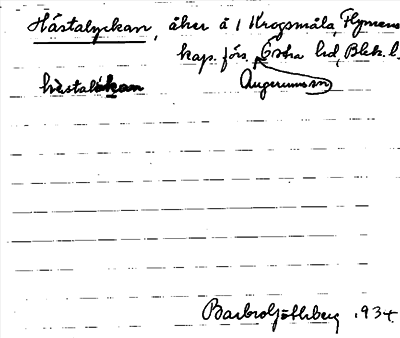 Hästalyckan, åker å 1 Krogsmåla, Flymens
kap. förs. Östra hd, Blek. l.
hästalökan Augerums sn
Barbro Göthberg 1934.